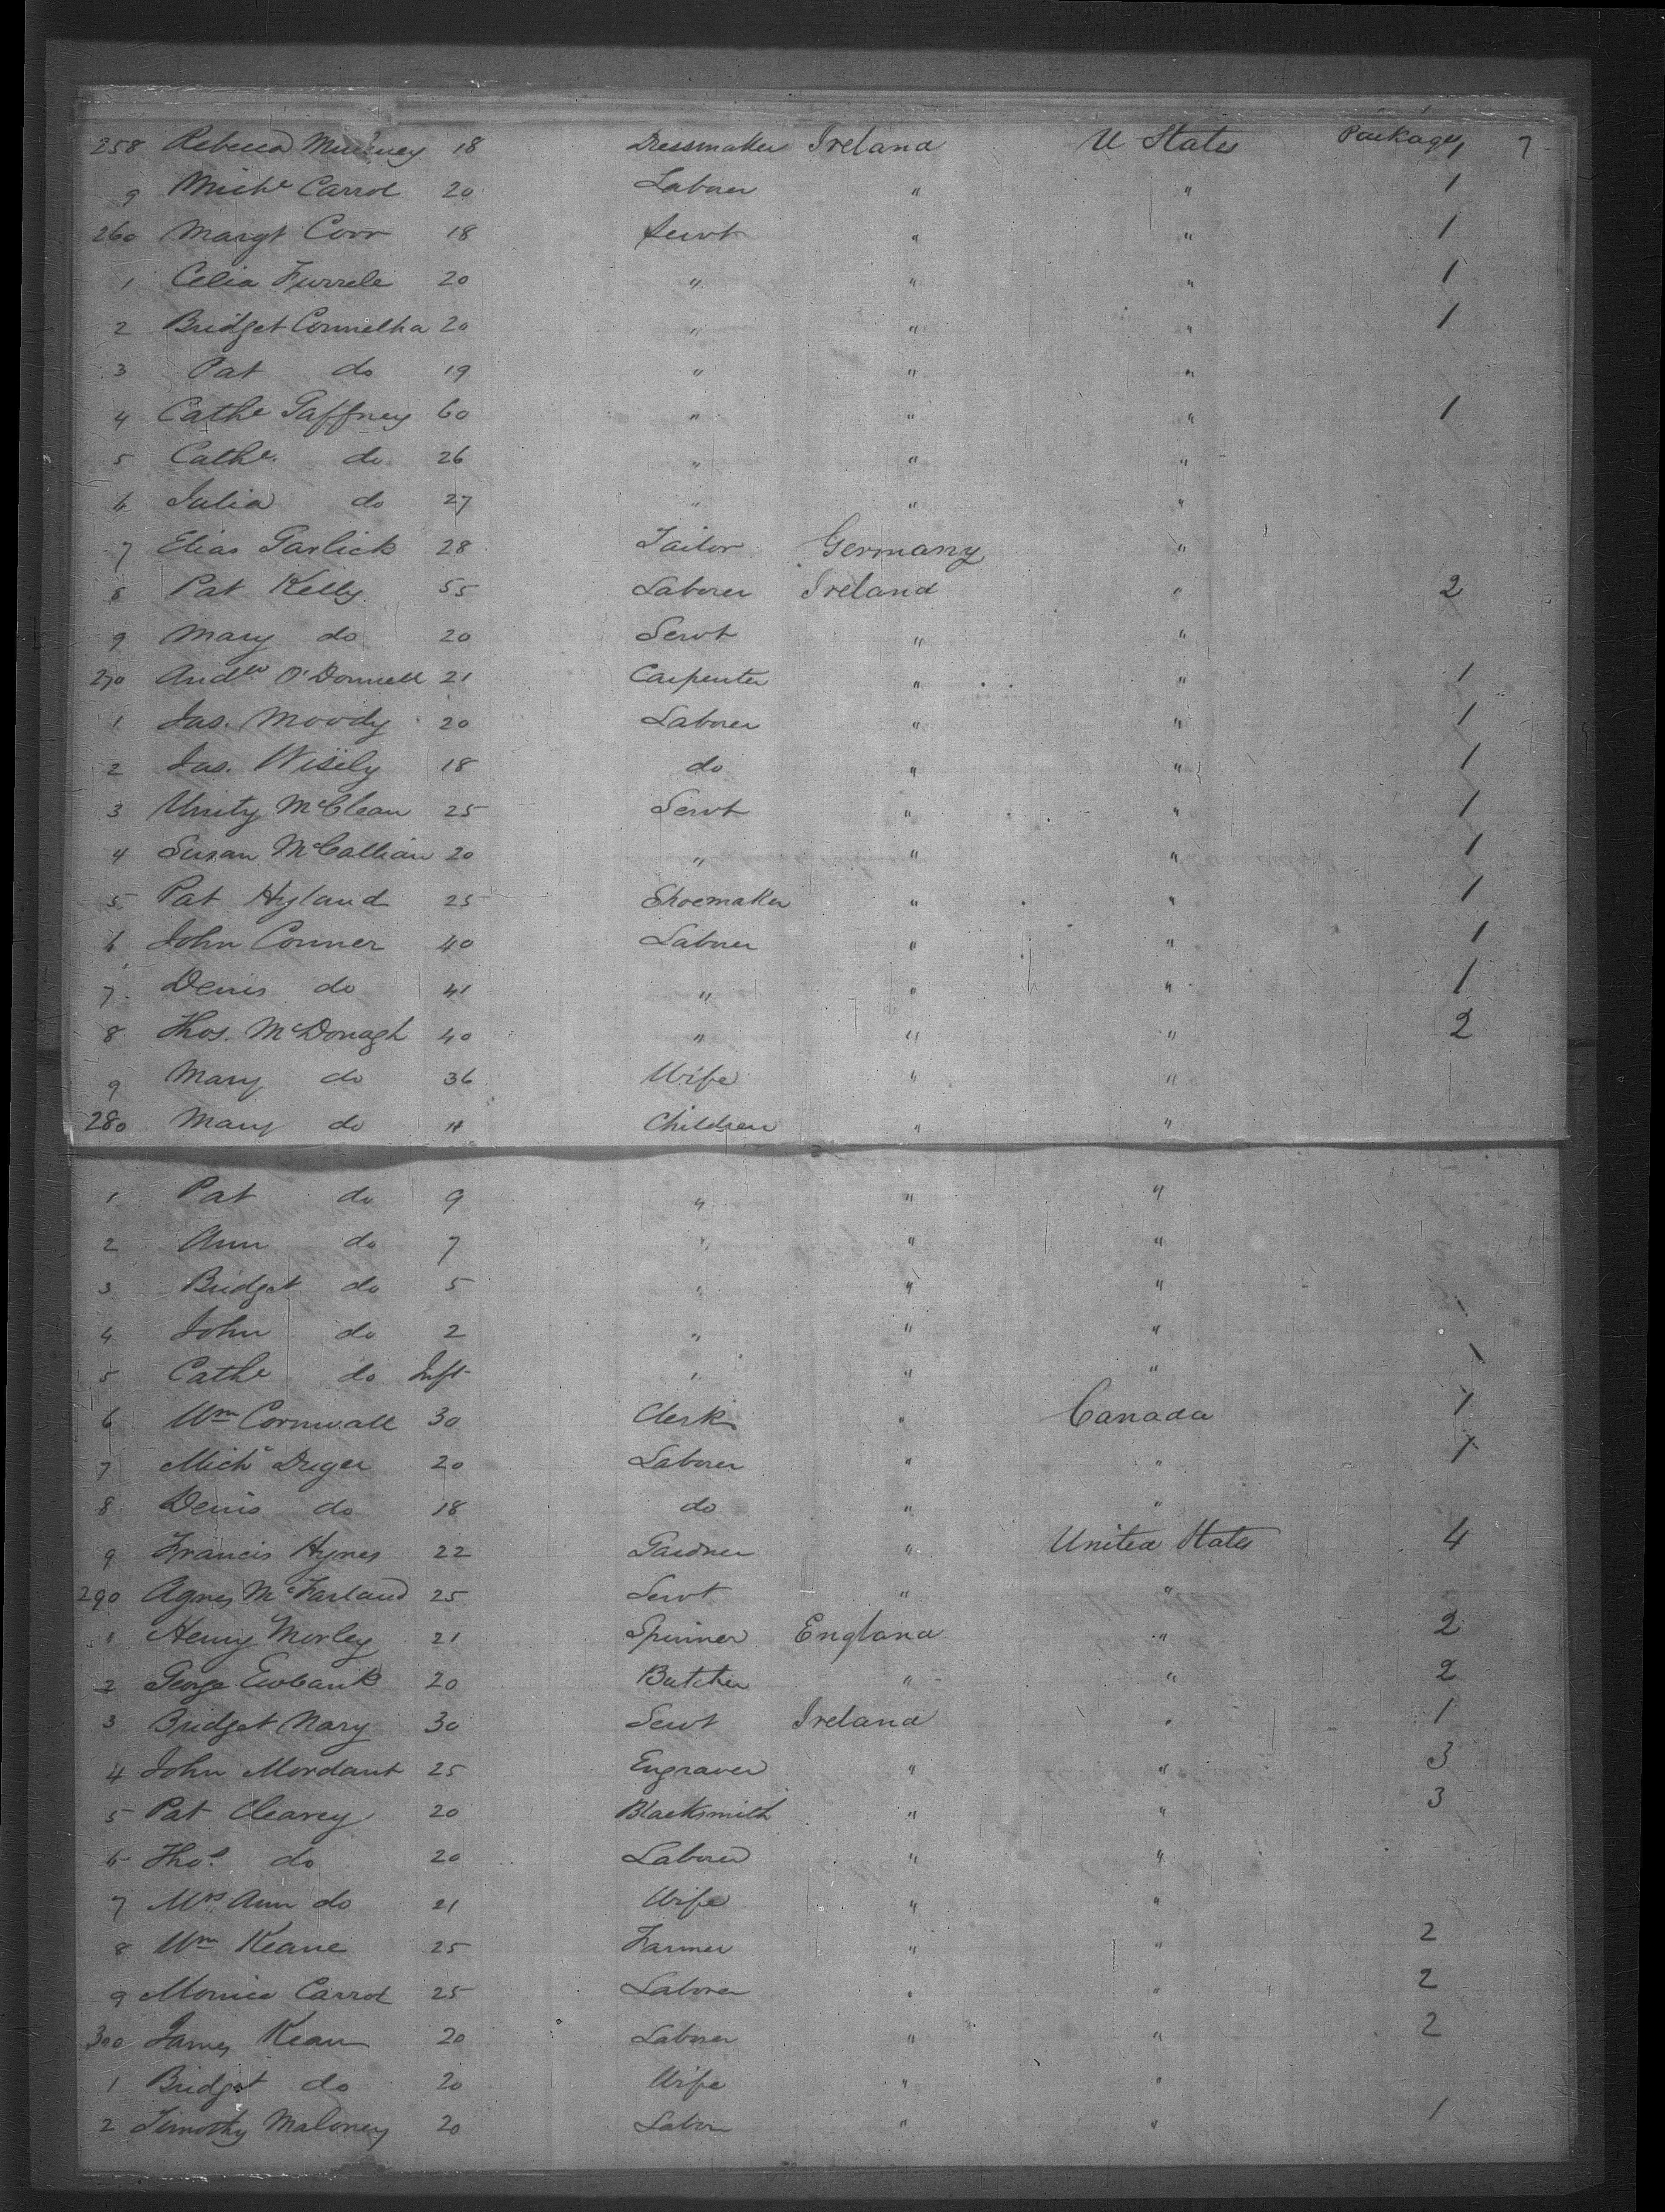 258 Rebecca 18 Dressmaker Ireland U States Packages 1 7
9 Michl Carrol 20 Laborer " " 1
260 Margt Corr 18 Servt " " 1
1 Celia 20 " " " 1
2 Bridget 20 " " " 1
3 Pat do 19 " " "
4 Cathe Gaffney 60 " " " 1
5 Cathe. do 26 " " "
6 Julia do 27 " " "
7 Elias Garlick 28 Tailor Germany "
8 Pat Kelly 55 Laborer Ireland " 2
9 Mary do 20 Servt " "
270 Andw O'Donnell 21 Carpenter " " 1
1 Jas. Moody 20 Laborer " " 1
2 Jas. Wisely 18 do " " 1
3 Unity McClean 25 Servt " " 1
4 Susan McCallian 20 " " " 1
5 Pat Hyland 25 Shoemaker " " 1
6 John Conner 40 Laborer " " 1
7 Denis do 41 " " " 1
8 Thos. McDonagh 40 " " " 2
9 Mary do 36 Wife " "
280 Mary do 11 Children " "
1 Pat do 9 " " "
2 Ann do 7 " " "
3 Bridget do 5 " " "
4 John do 2 " " "
5 Cathe do Inft " " "
6 Wm Cornwall 30 Clerk " Canada 1
7 Michl Dwyer 20 Laborer " " 1
8 Denis do 18 do " "
9 Francis Hynes 22 Gardner " United States 4
290 Agnes McFarland 25 Servt " "
1 Henry Morley 21 Spinner England " 2
2 George Ewbank 20 Butcher " " 2
3 Bridget Nary 30 Servt Ireland " 1
4 John Mordant 25 Engraver " " 3
5 Pat Clearey 20 Blacksmith " " 3
6 Thos. do 20 Laborer " "
7 Mrs Ann do 21 Wife " "
8 Wm Keane 25 Farmer " " 2
9 Carrol 25 Laborer " " 2
300 James Kean 20 Laborer " " 2
1 Bridget do 20 Wife " "
2 Timothy Maloney 20 Labor " " 1